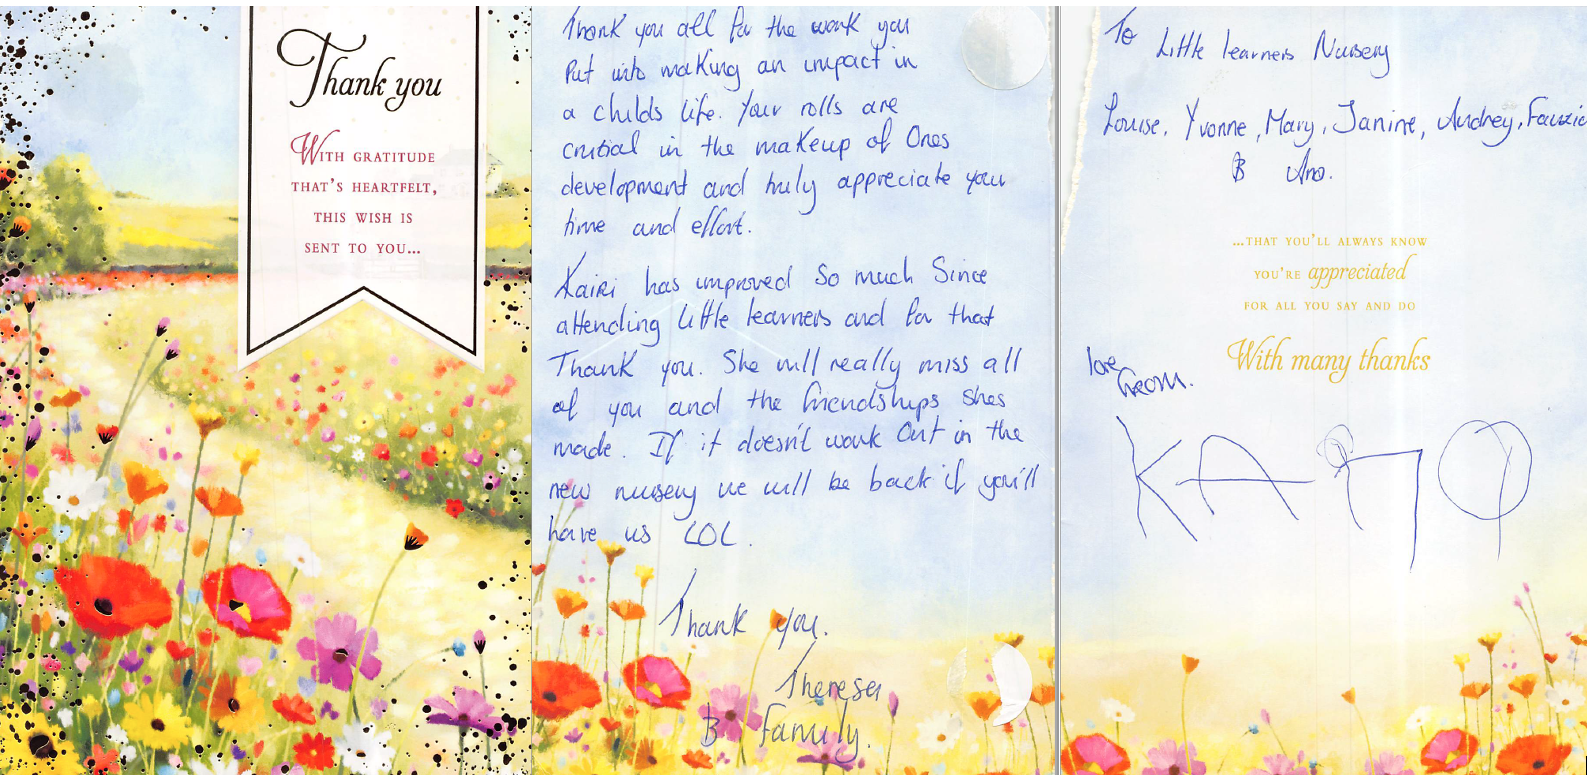 Thank you
WITH GRATITUDE
THAT'S HEARTFELT,
THIS WISH IS
SENT TO YOU...
Thank you all for the work you
Put into making an impact in
a childs life. Your rolls are
crutial in the makeup of Ones
development and truly appreciate your
time and effort.
Kairi has improved So much Since
attending Little learners and for that
Thank you. She will really miss all
of you and the friendships shes
made. If it doesn't work Out in the
new nursery we will be back if you'll
have us LOL.
Thank you.
Theresa
& Family.
To Little learners Nursery
Louise, Yvonne, Mary, Janine, Audrey, Fauzia
& Ana.
...THAT YOU'LL ALWAYS KNOW
YOU'RE appreciated
FOR ALL YOU SAY AND DO
With many thanks
love
from.